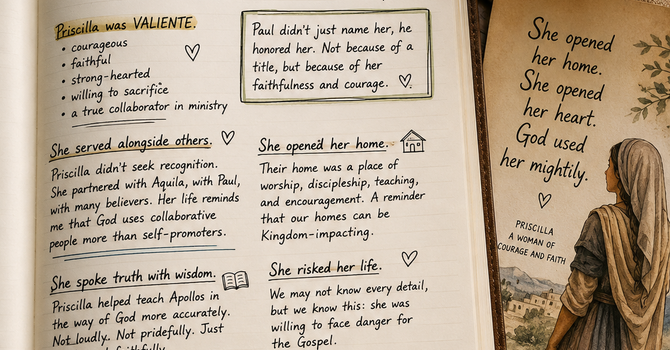 Priscilla was VALIENTE.
• courageous
• faithful
• strong-hearted
• willing to sacrifice
• a true collaborator in ministry
Paul didn't just name her, he
honored her. Not because of a
title, but because of her
faithfulness and courage.
She served alongside others.
Priscilla didn't seek recognition.
She partnered with Aquila, with Paul,
with many believers. Her life reminds
me that God uses collaborative
people more than self-promoters.
She opened her home.
Their home was a place of
worship, discipleship, teaching,
and encouragement. A reminder
that our homes can be
Kingdom-impacting.
She spoke truth with wisdom.
Priscilla helped teach Apollos in
the way of God more accurately.
Not loudly. Not pridefully. Just
She risked her life.
We may not know every detail,
but we know this: she was
willing to face danger for
the Gospel.
She opened
her home.
She opened
her heart.
God used
her mightily.
PRISCILLA
A WOMAN OF
COURAGE AND FAITH